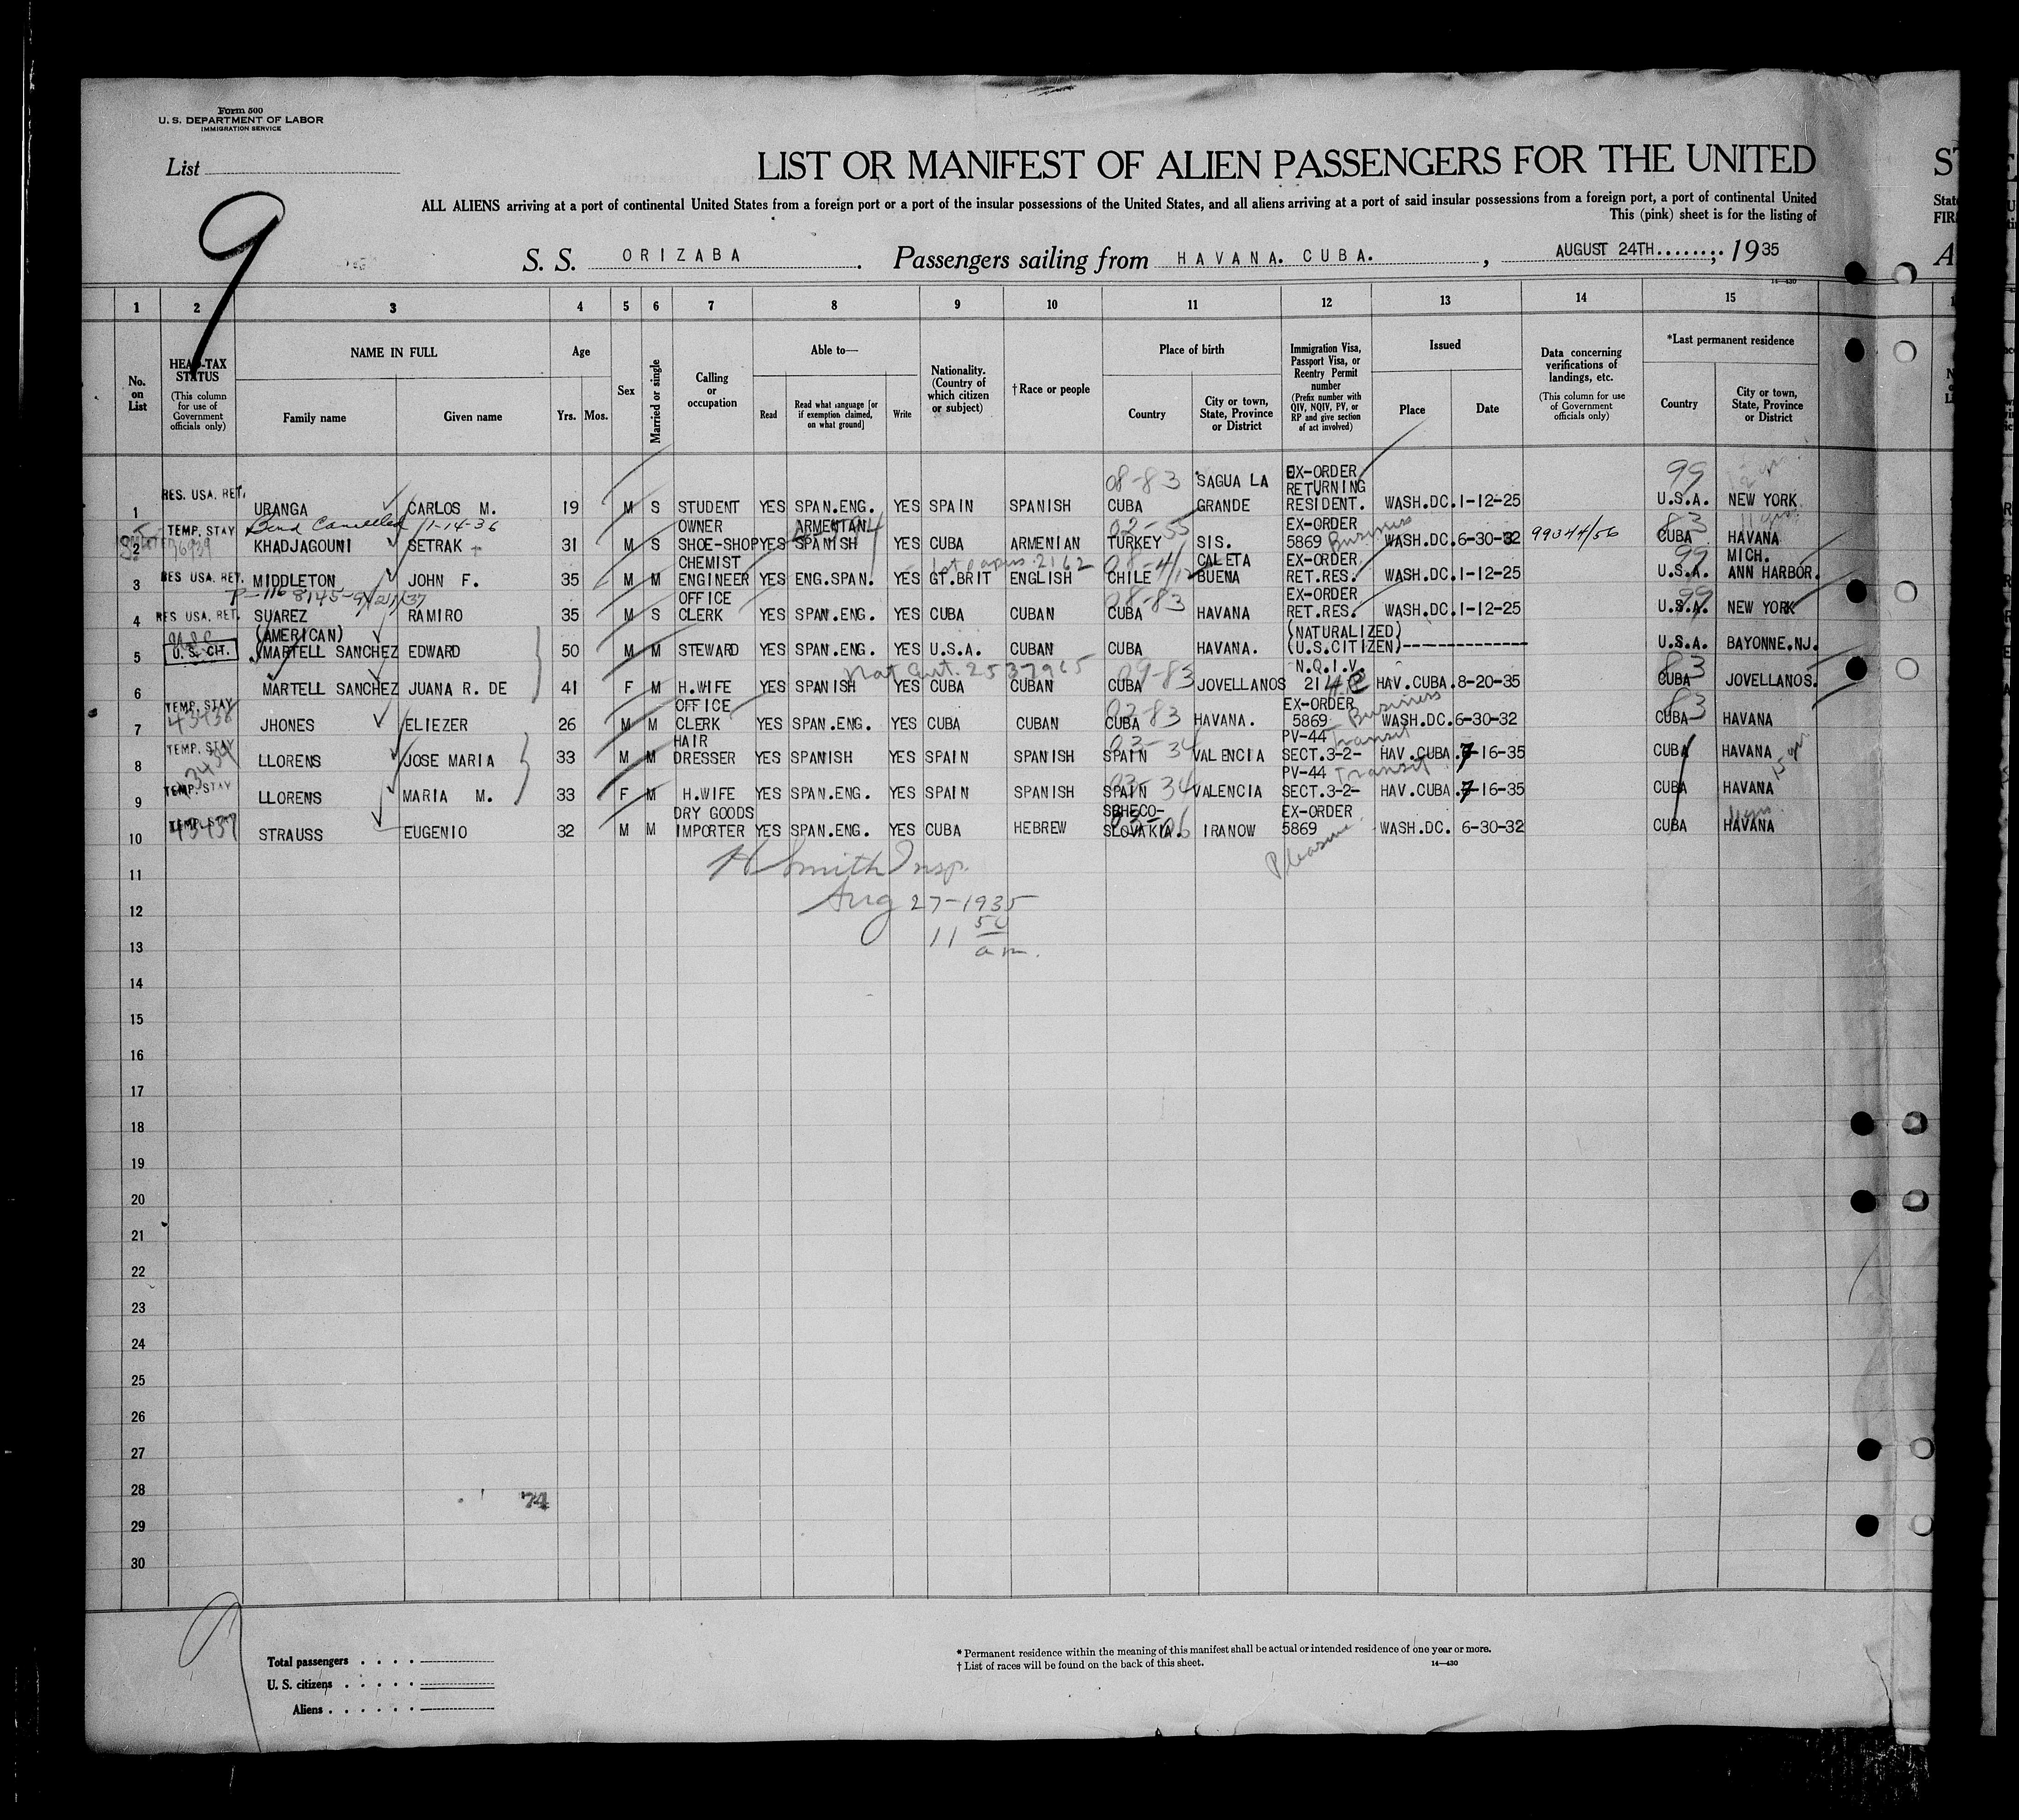 Form 500
U. S. DEPARTMENT OF LABOR
IMMIGRATION SERVICE
List
9
LIST OR MANIFEST OF ALIEN PASSENGERS FOR THE UNITED
ALL ALIENS arriving at a port of continental United States from a foreign port or a port of the insular possessions of the United States, and all aliens arriving at a port of said insular possessions from a foreign port, a port of continental United
This (pink) sheet is for the listing of
S. S. ORIZABA. Passengers sailing from HAVANA. CUBA., AUGUST 24TH......;. 1935
14—430
1 2 3 4 5 6 7 8 9 10 11 12 13 14 15
No. on List
HEAD-TAX STATUS (This column for use of Government officials only)
NAME IN FULL
Family name Given name
Age
Yrs. Mos.
Sex
Married or single
Calling or occupation
Able to—
Read
Read what language [or if exemption claimed, on what ground]
Write
Nationality. (Country of which citizen or subject)
† Race or people
Place of birth
Country
City or town, State, Province or District
Immigration Visa, Passport Visa, or Reentry Permit number (Prefix number with QIV, NQIV, PV, or RP and give section of act involved)
Issued
Place Date
Data concerning verifications of landings, etc. (This column for use of Government officials only)
*Last permanent residence
Country
City or town, State, Province or District
08-83 SAGUA LA EX-ORDER 99
RES. USA. RET. RETURNING
1 URANGA CARLOS M. 19 M S STUDENT YES SPAN.ENG. YES SPAIN SPANISH CUBA GRANDE RESIDENT. WASH.DC. 1-12-25 U.S.A. NEW YORK
TEMP. STAY Bond Cancelled 1-14-36 OWNER ARMENIAN 02-55 EX-ORDER 83
2 KHADJAGOUNI SETRAK 31 M S SHOE-SHOP YES SPANISH YES CUBA ARMENIAN TURKEY SIS. 5869 Business WASH.DC. 6-30-32 99344/56 CUBA HAVANA
CHEMIST 1st papers 2162 CALETA EX-ORDER 99 MICH.
3 RES USA. RET. MIDDLETON JOHN F. 35 M M ENGINEER YES ENG.SPAN. YES GT.BRIT ENGLISH CHILE BUENA RET.RES. WASH.DC. 1-12-25 U.S.A. ANN HARBOR.
OFFICE 08-83 EX-ORDER 99
4 RES USA. RET. SUAREZ RAMIRO 35 M S CLERK YES SPAN.ENG. YES CUBA CUBAN CUBA HAVANA RET.RES. WASH.DC. 1-12-25 U.S.A. NEW YORK
(AMERICAN) (NATURALIZED)
5 U. S. CIT. (MARTELL SANCHEZ EDWARD 50 M M STEWARD YES SPAN.ENG. YES U.S.A. CUBAN CUBA HAVANA. (U.S.CITIZEN)------------- U.S.A. BAYONNE.NJ.
Nat Cert. 2537965 09-83 N.Q.I.V. 83
6 MARTELL SANCHEZ JUANA R. DE 41 F M H.WIFE YES SPANISH YES CUBA CUBAN CUBA JOVELLANOS 214 HAV.CUBA. 8-20-35 CUBA JOVELLANOS.
TEMP. STAY OFFICE 02-83 EX-ORDER 83
7 43436 JHONES ELIEZER 26 M M CLERK YES SPAN.ENG. YES CUBA CUBAN CUBA HAVANA. 5869 Business WASH.DC. 6-30-32 CUBA HAVANA
TEMP. STAY HAIR 03-34 PV-44 Transit
8 LLORENS JOSE MARIA 33 M M DRESSER YES SPANISH YES SPAIN SPANISH SPAIN VALENCIA SECT.3-2- HAV.CUBA. 7-16-35 CUBA HAVANA
TEMP. STAY 03-34 PV-44 Transit
9 LLORENS MARIA M. 33 F M H.WIFE YES SPAN.ENG. YES SPAIN SPANISH SPAIN VALENCIA SECT.3-2- HAV.CUBA. 7-16-35 CUBA HAVANA
TEMP. STAY DRY GOODS EX-ORDER
10 43437 STRAUSS EUGENIO 32 M M IMPORTER YES SPAN.ENG. YES CUBA HEBREW SLOVAKIA. IRANOW 5869 Pleasure WASH.DC. 6-30-32 CUBA HAVANA
11 H Smith Insp.
12 Aug 27-1935
13 11 50 am.
14
15
16
17
18
19
20
21
22
23
24
25
26
27
28 74
29
30
Total passengers
U. S. citizens
Aliens
* Permanent residence within the meaning of this manifest shall be actual or intended residence of one year or more.
† List of races will be found on the back of this sheet.
14—430